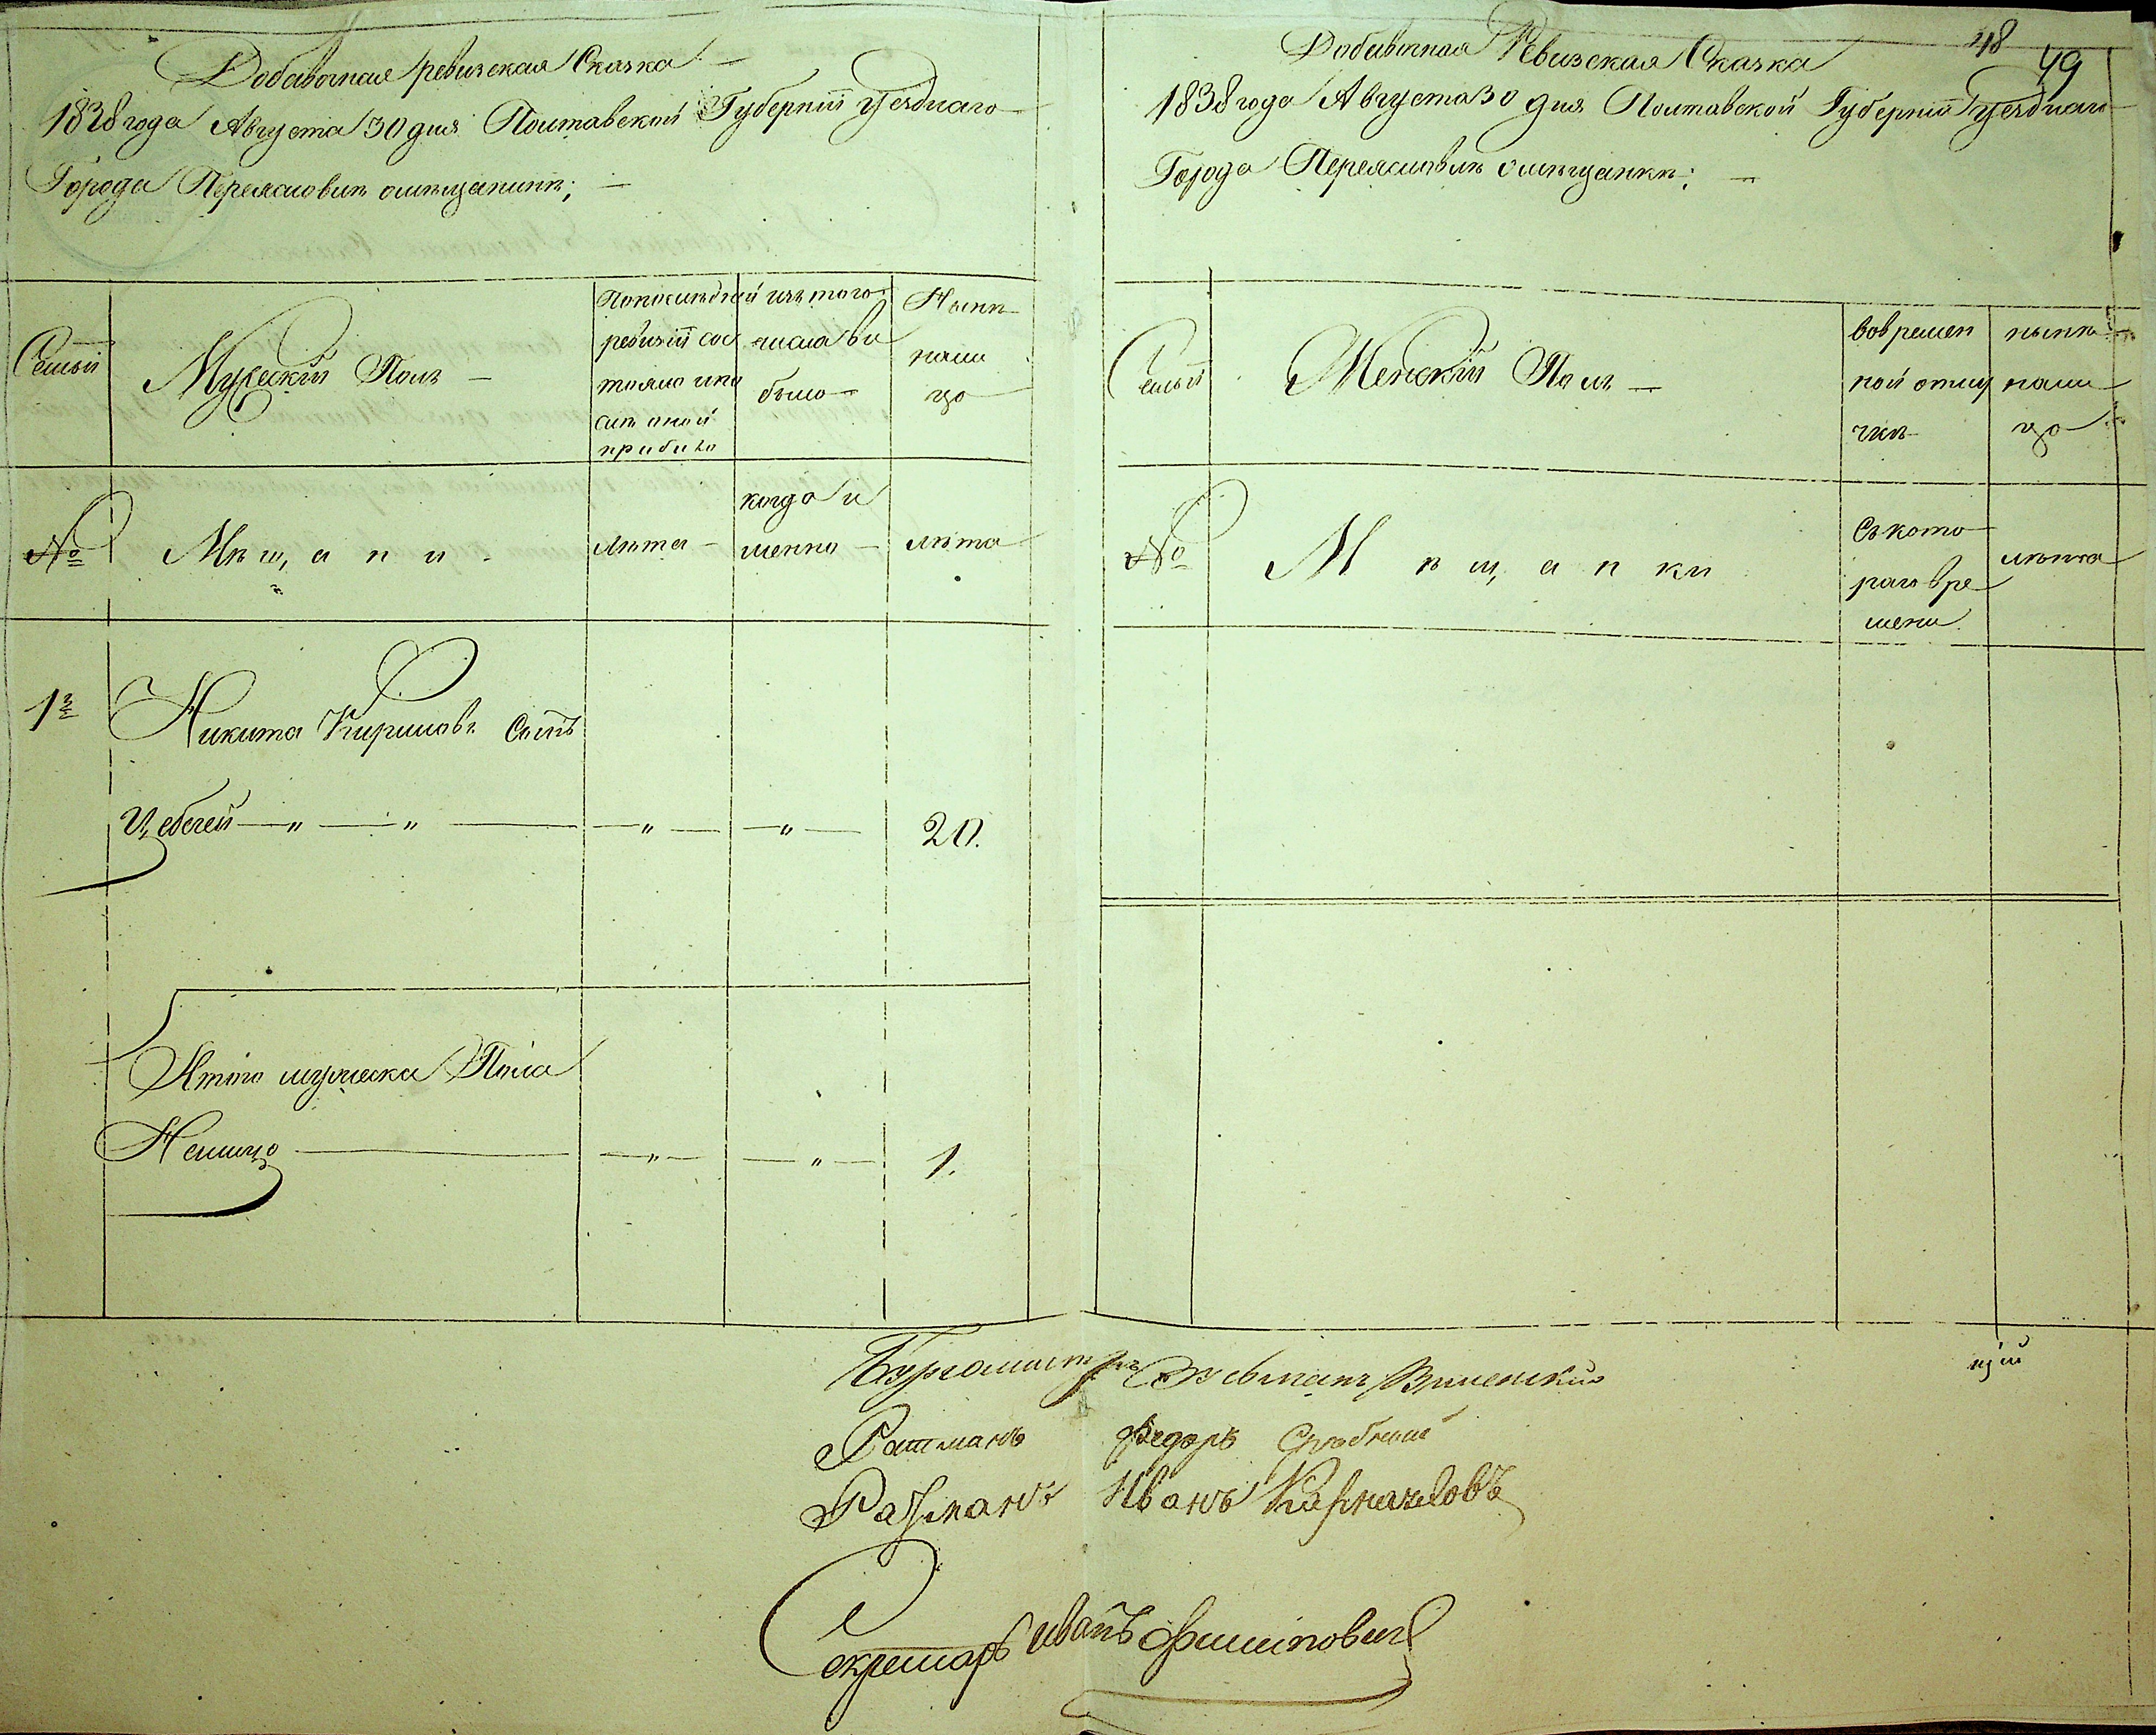 Добавочная ревизская Сказка
1838 года Августа 30 дня Полтавской Губернии уезднаго
Города Переяславля омещанине;
Семьи
Мужеский Полъ
По последней ревизии состояло и после оной прибыло
изъ того числа выбыло
Ныне налицо
№
Мѣщане
лета
когда именно
лѣта
1й
Никита Кириловъ Сынъ
Цебрей — " — " — " — " — 20.
Итого мужеска Пола
Налицо — " — " — 1.
48
49
Добавочная Ревизская Сказка
1838 года Августа 30 дня Полтавской Губернии уезднаго
Города Переяславля омещанке;
Семьи
Женский Полъ
во временной отлучке
ныне налицо
№
Мѣщанки
Съ котораго времени
лѣта
Бургомистръ
Ратманъ Федоръ
Ратманъ Иванъ Кармазиновъ
Секретарь Иванъ Филиповичъ